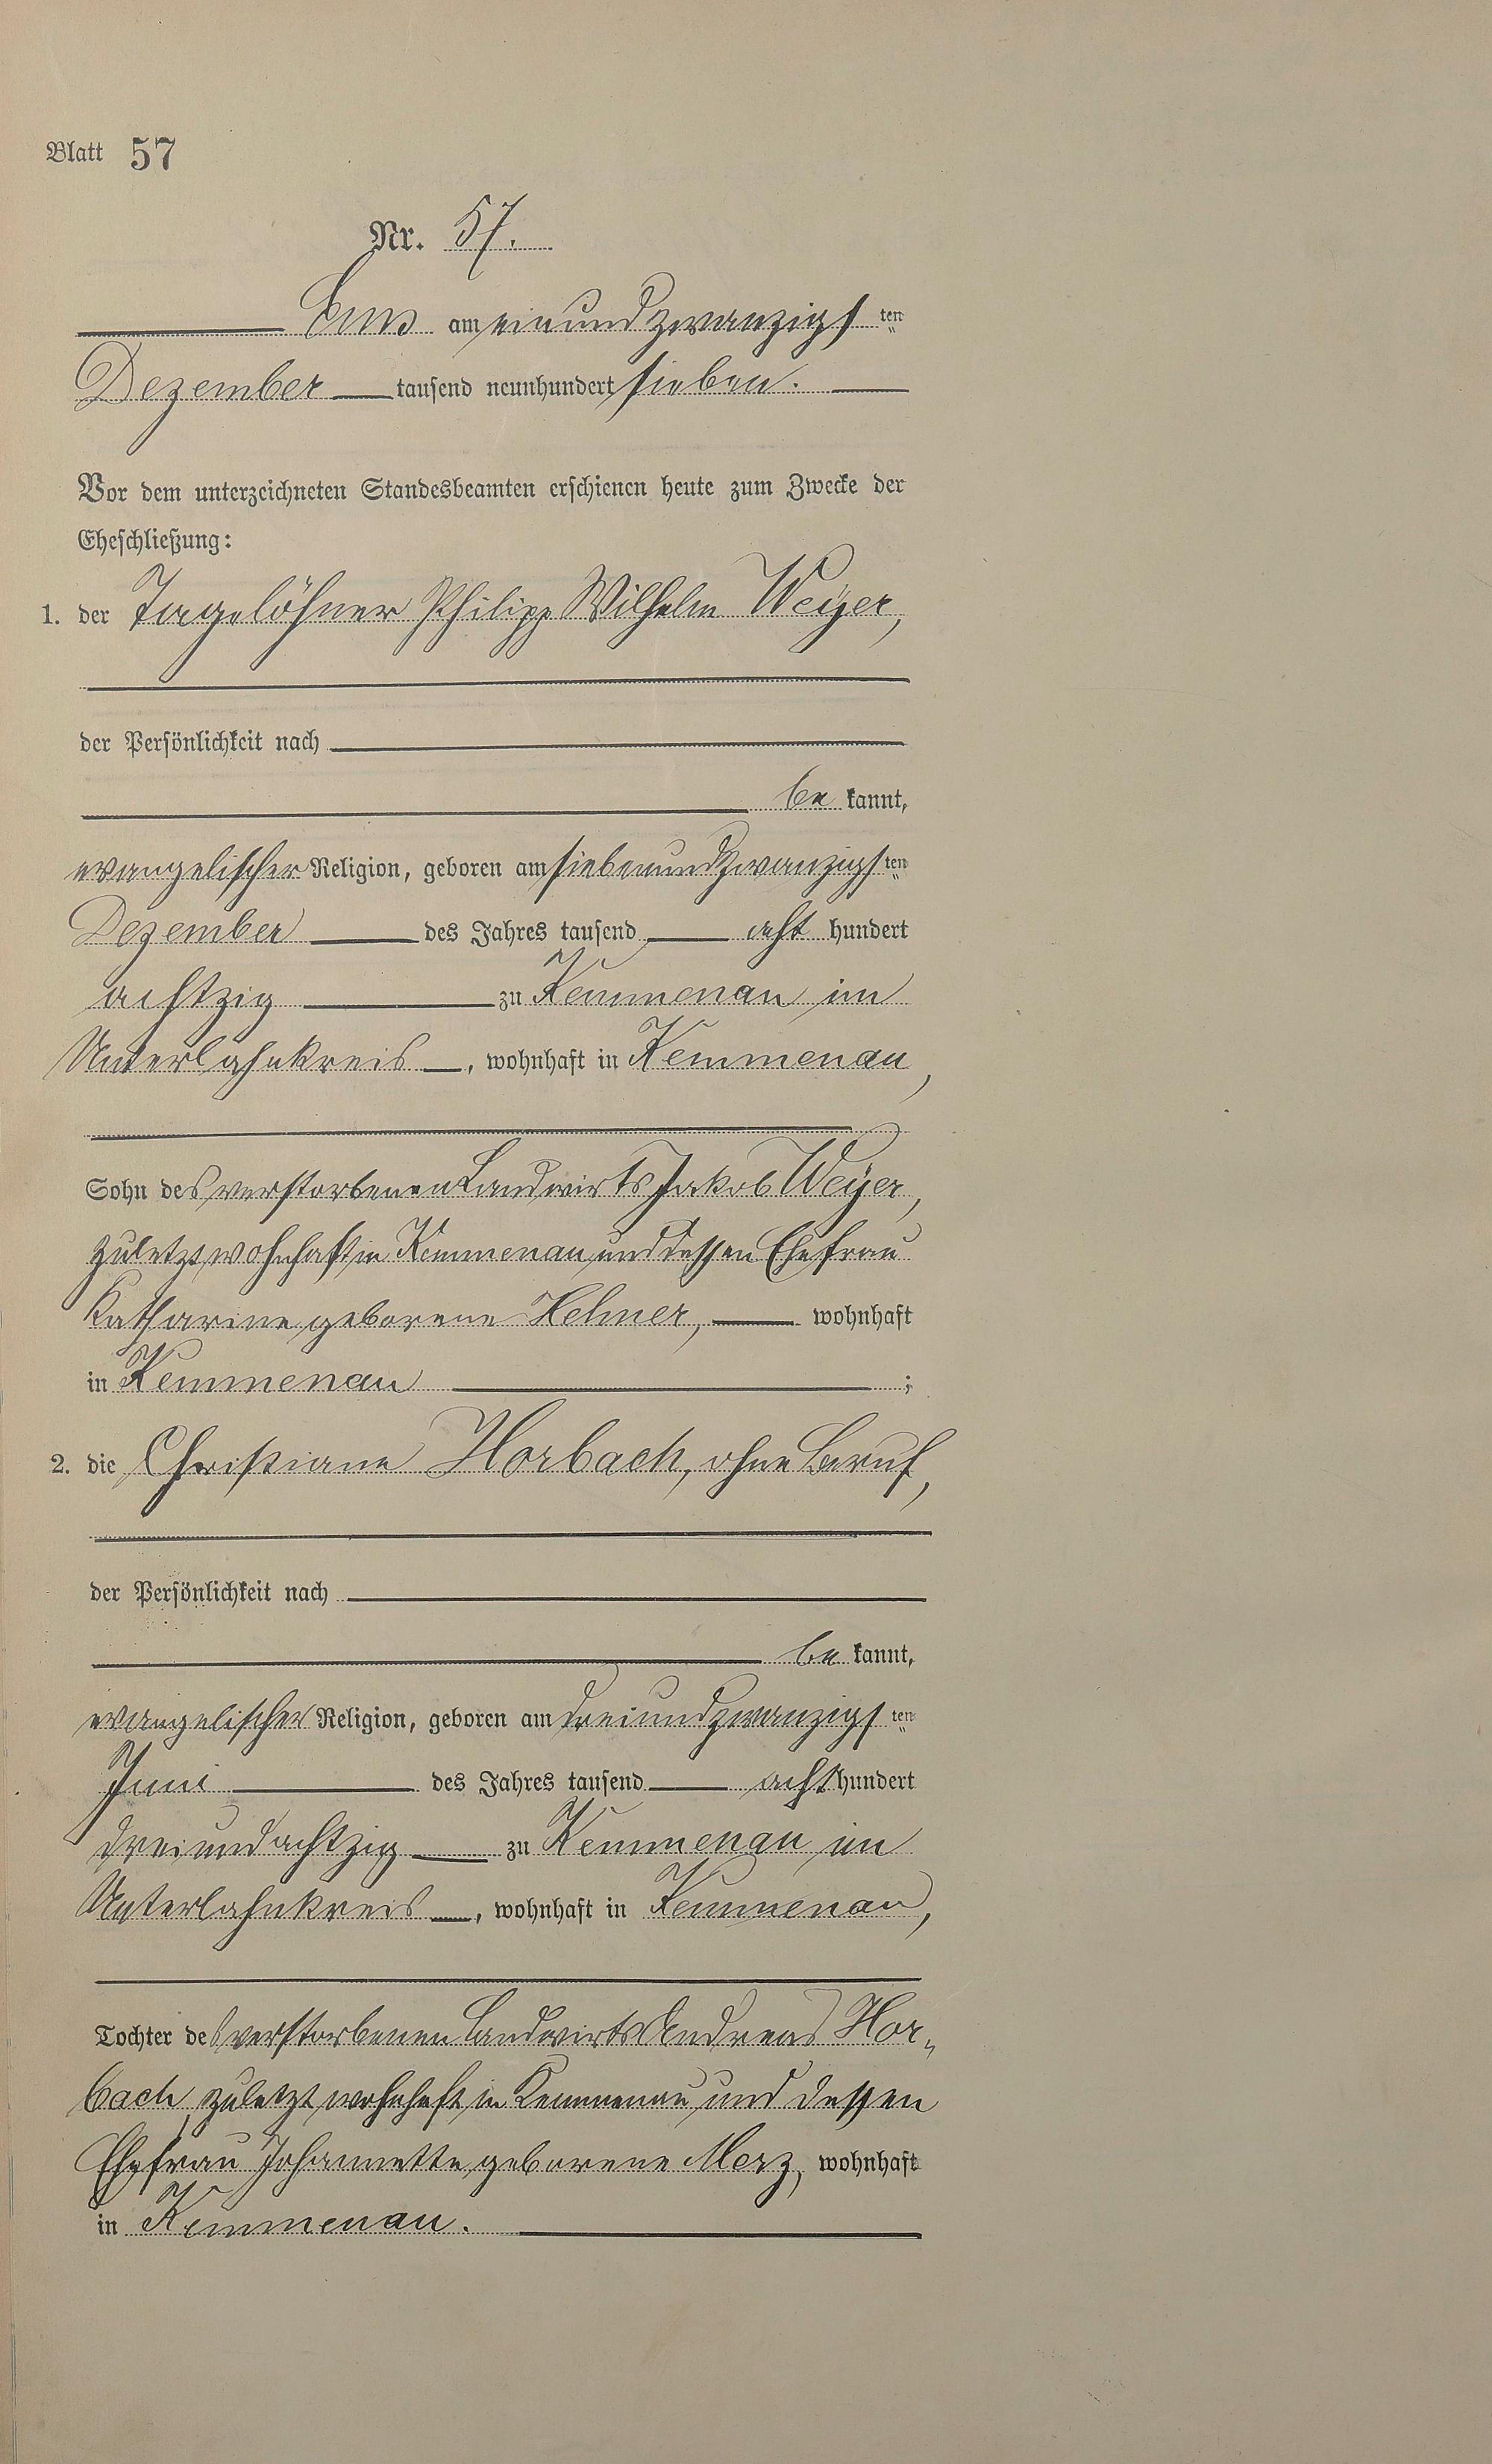 Blatt 57
Nr. 57.
Ems am einundzwanzigsten
Dezember tausend neunhundert sieben.
Vor dem unterzeichneten Standesbeamten erschienen heute zum Zwecke der
Eheschließung:
1. der Tagelöhner Philipp Wilhelm Weyer,
der Persönlichkeit nach
be kannt,
evangelischer Religion, geboren am siebenundzwanzigsten
Dezember des Jahres tausend acht hundert
achtzig zu Kemmenau im
Unterlahnkreis, wohnhaft in Kemmenau,
Sohn des verstorbenen Landwirts Jakob Weyer,
zuletzt wohnhaft in Kemmenau und dessen Ehefrau
Katharine geborene Hehner, wohnhaft
in Kemmenau ;
2. die Christiane Horbach, ohne Beruf,
der Persönlichkeit nach
be kannt,
evangelischer Religion, geboren am dreiundzwanzigsten
Juni des Jahres tausend acht hundert
dreiundachtzig zu Kemmenau im
Unterlahnkreis, wohnhaft in Kemmenau,
Tochter des verstorbenen Landwirts Andreas Hor„
bach, zuletzt wohnhaft in Kemmenau und dessen
Ehefrau Johannette geborene Merz, wohnhaft
in Kemmenau.